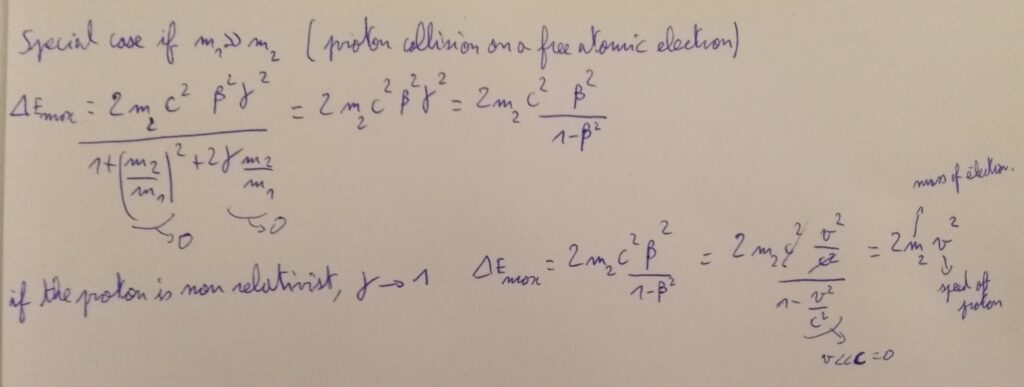 Special case if m₁ ≫ m₂ ( proton collision on a free atomic electron)
ΔEmax = 2m₂c² β²γ² / (1+(m₂/m₁)² + 2γ m₂/m₁) = 2m₂c²β²γ² = 2m₂c² β²/(1-β²)
→0 →0
mass of electron.
if the proton is non relativist, γ → 1 ΔEmax = 2m₂c²β²/(1-β²) = 2m₂c² v²/c² / (1 - v²/c²) = 2m₂v²
speed of proton
v≪c =0